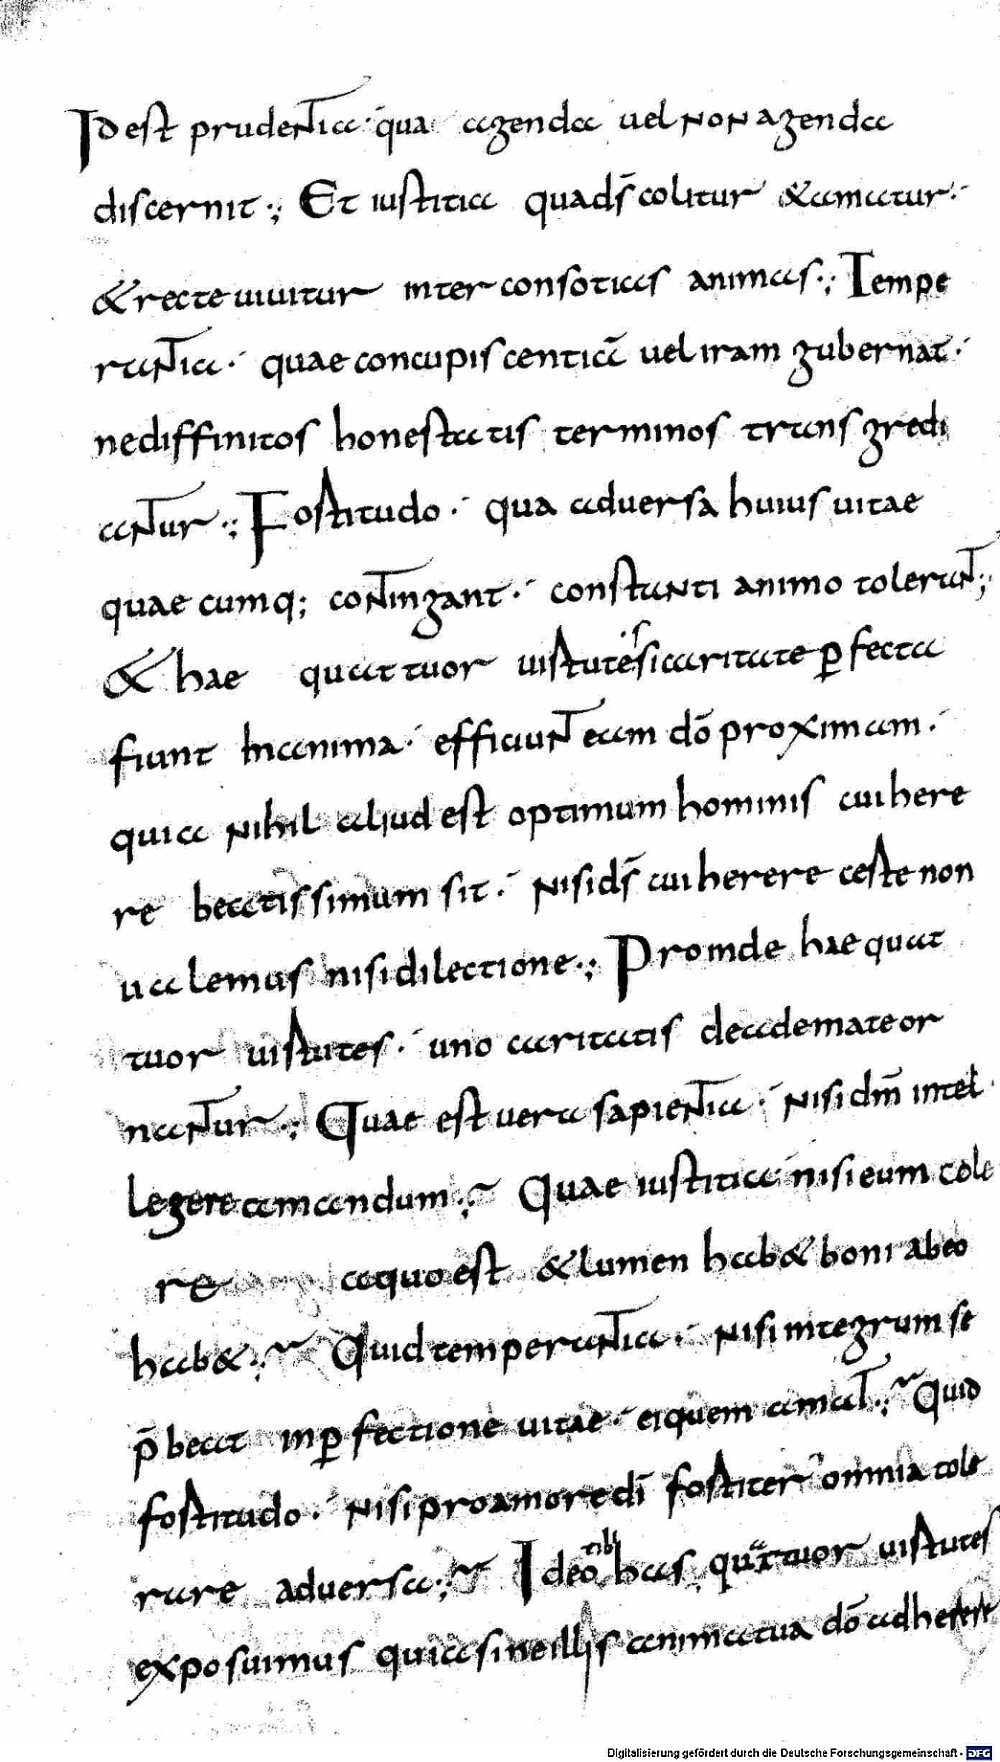 Id est prudentia· qua agenda uel non agenda
discernit·; Et iustitia qua ds̄ colitur & amatur·
& recte uiuitur inter consotias animas·; Tempe
rantia· quae concupiscentiā uel iram gubernat·
ne diffinitos honestatis terminos transgredi
antur·; Fortitudo· qua aduersa huius uitae
quae cumq; contingant· constanti animo tolerant·;
& hae quattuor uirtutes si caritate ꝑfecta
fiunt In anima· efficiunt eam dō proximam·
quia nihil aliud est optimum hominis cui here
re beatissimum sit· Nisi ds̄ cui herere certe non
ualemus nisi dilectione·; Proinde hae quat
tuor uirtutes· uno caritatis deademate or
nantur·; Quae est uera sapientia· Nisi dm̄ intel
legere amandum·; Quae iustitia· nisi eum cole
re a quo est & lumen hab& boni ab eo
hab&·; Quid temperantia· Nisi integrum se
p̄beat in ꝑfectione uitae· ei quem amat·; Quid
fortitudo· Nisi pro amore dī fortiter omnia tole
rare aduersa·; Ideo tibi has quattuor uirtutes
exposuimus quia sine illis anima tua dō adherere
Digitalisierung gefördert durch die Deutsche Forschungsgemeinschaft - DFG